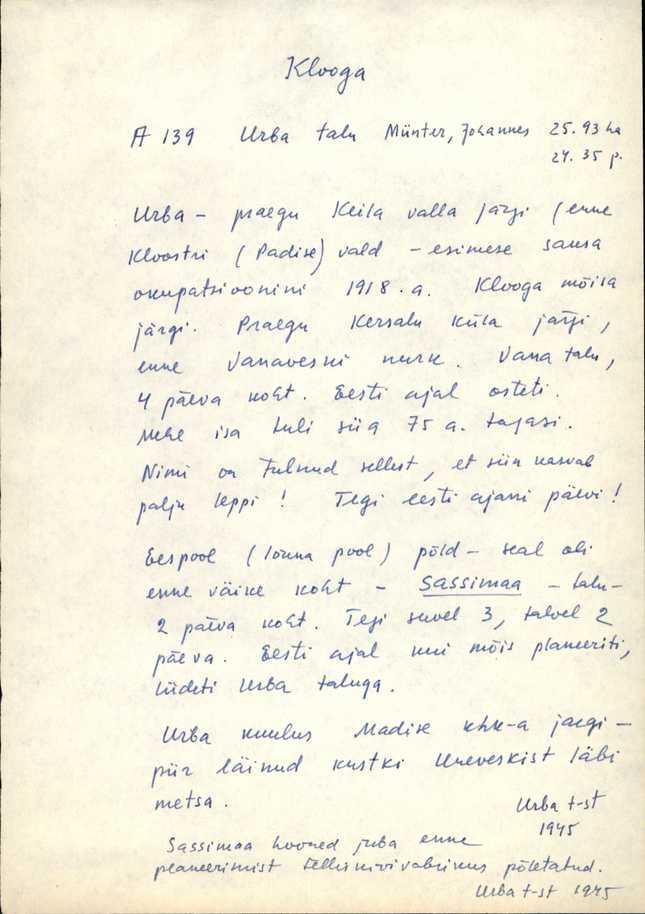 Klooga
A 139 Urba talu Münter, Johannes 25.93 ha
24.35 p.
Urba – praegu Keila valla järgi (enne
Kloostri (Padise) vald – esimese saksa
okupatsioonini 1918.a. Klooga mõisa
järgi. Praegu Kersalu küla järgi,
enne Vanaveski nurk. Vana talu,
4 päeva koht. Eesti ajal osteti.
Mehe isa tuli siia 75 a. tagasi.
Nimi on tulnud sellest, et siin kasvab
palju leppi! Tegi eesti ajani päevi!
Eespool (lõuna pool) põld – seal oli
enne väike koht – Sassimaa – talu –
2 päeva koht. Tegi suvel 3, talvel 2
päeva. Eesti ajal kui mõis planeeriti,
liideti Urba taluga.
Urba kuulus Madise khk-a järgi –
piir läinud kustki Uneveskist läbi
metsa.
Urba t-st
1945
Sassimaa hooned juba enne
planeerimist tellisk​ivivabrikus põletatud.
Urba t-st 1945